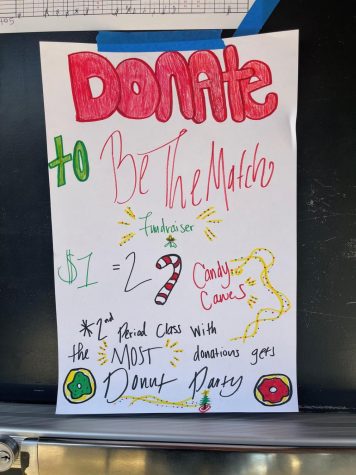 DONAtE
to Be The Match
Fundraiser
$1 = 2 Candy
Canes
*2nd Period Class With
the MOST donations gets
Donut Party